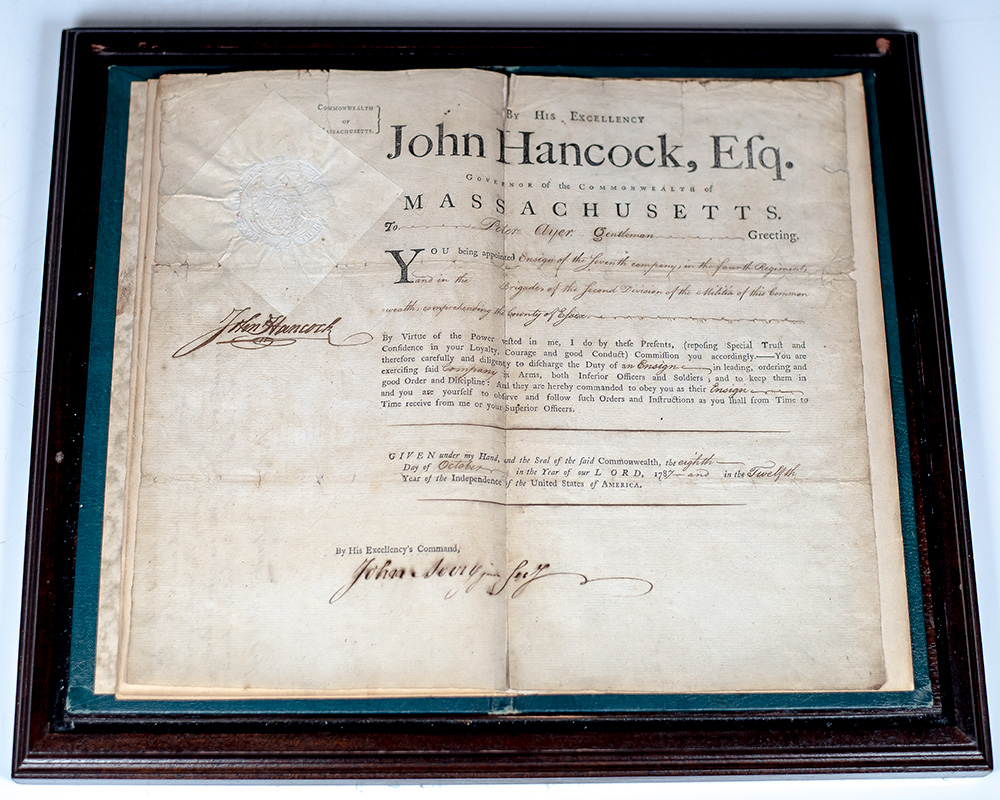 COMMONWEALTH
OF
MASSACHUSETTS.
By His Excellency
John Hancock, Eſq.
GOVERNOR of the COMMONWEALTH of
MASSACHUSETTS.
To Peter Ayer Gentleman Greeting.
YOU being appointed Ensign of the Seventh company, in the fourth Regiment
and in the Brigade, of the Second Division of the Militia of this Common
wealth, comprehending the County of Eſsex
John Hancock
By Virtue of the Power veſted in me, I do by theſe Preſents, (repoſing Special Truſt and
Confidence in your Loyalty, Courage and good Conduct) Commiſſion you accordingly.——You are
therefore carefully and diligently to diſcharge the Duty of an Ensign in leading, ordering and
exerciſing ſaid Company in Arms, both Inferior Officers and Soldiers; and to keep them in
good Order and Diſcipline: And they are hereby commanded to obey you as their Ensign
and you are yourſelf to obſerve and follow ſuch Orders and Inſtructions as you ſhall from Time to
Time receive from me or your Superior Officers.
GIVEN under my Hand, and the Seal of the ſaid Commonwealth, the eighth
Day of October in the Year of our LORD, 1787 and in the Twelfth
Year of the Independence of the United States of AMERICA.
By His Excellency's Command,
John Avery jun Secy